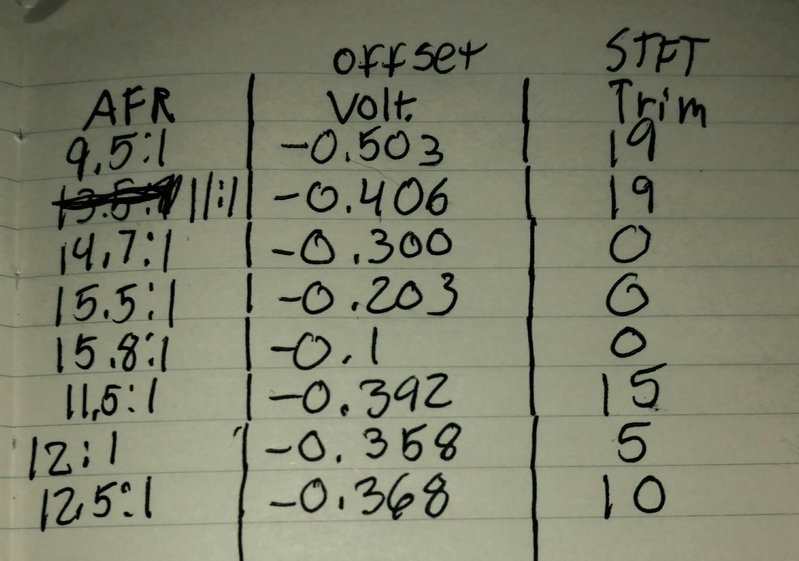 offset STFT
AFR Volt. Trim
9.5:1 -0.503 19
11:1 -0.406 19
14.7:1 -0.300 0
15.5:1 -0.203 0
15.8:1 -0.1 0
11.5:1 -0.392 15
12:1 -0.358 5
12.5:1 -0.368 10